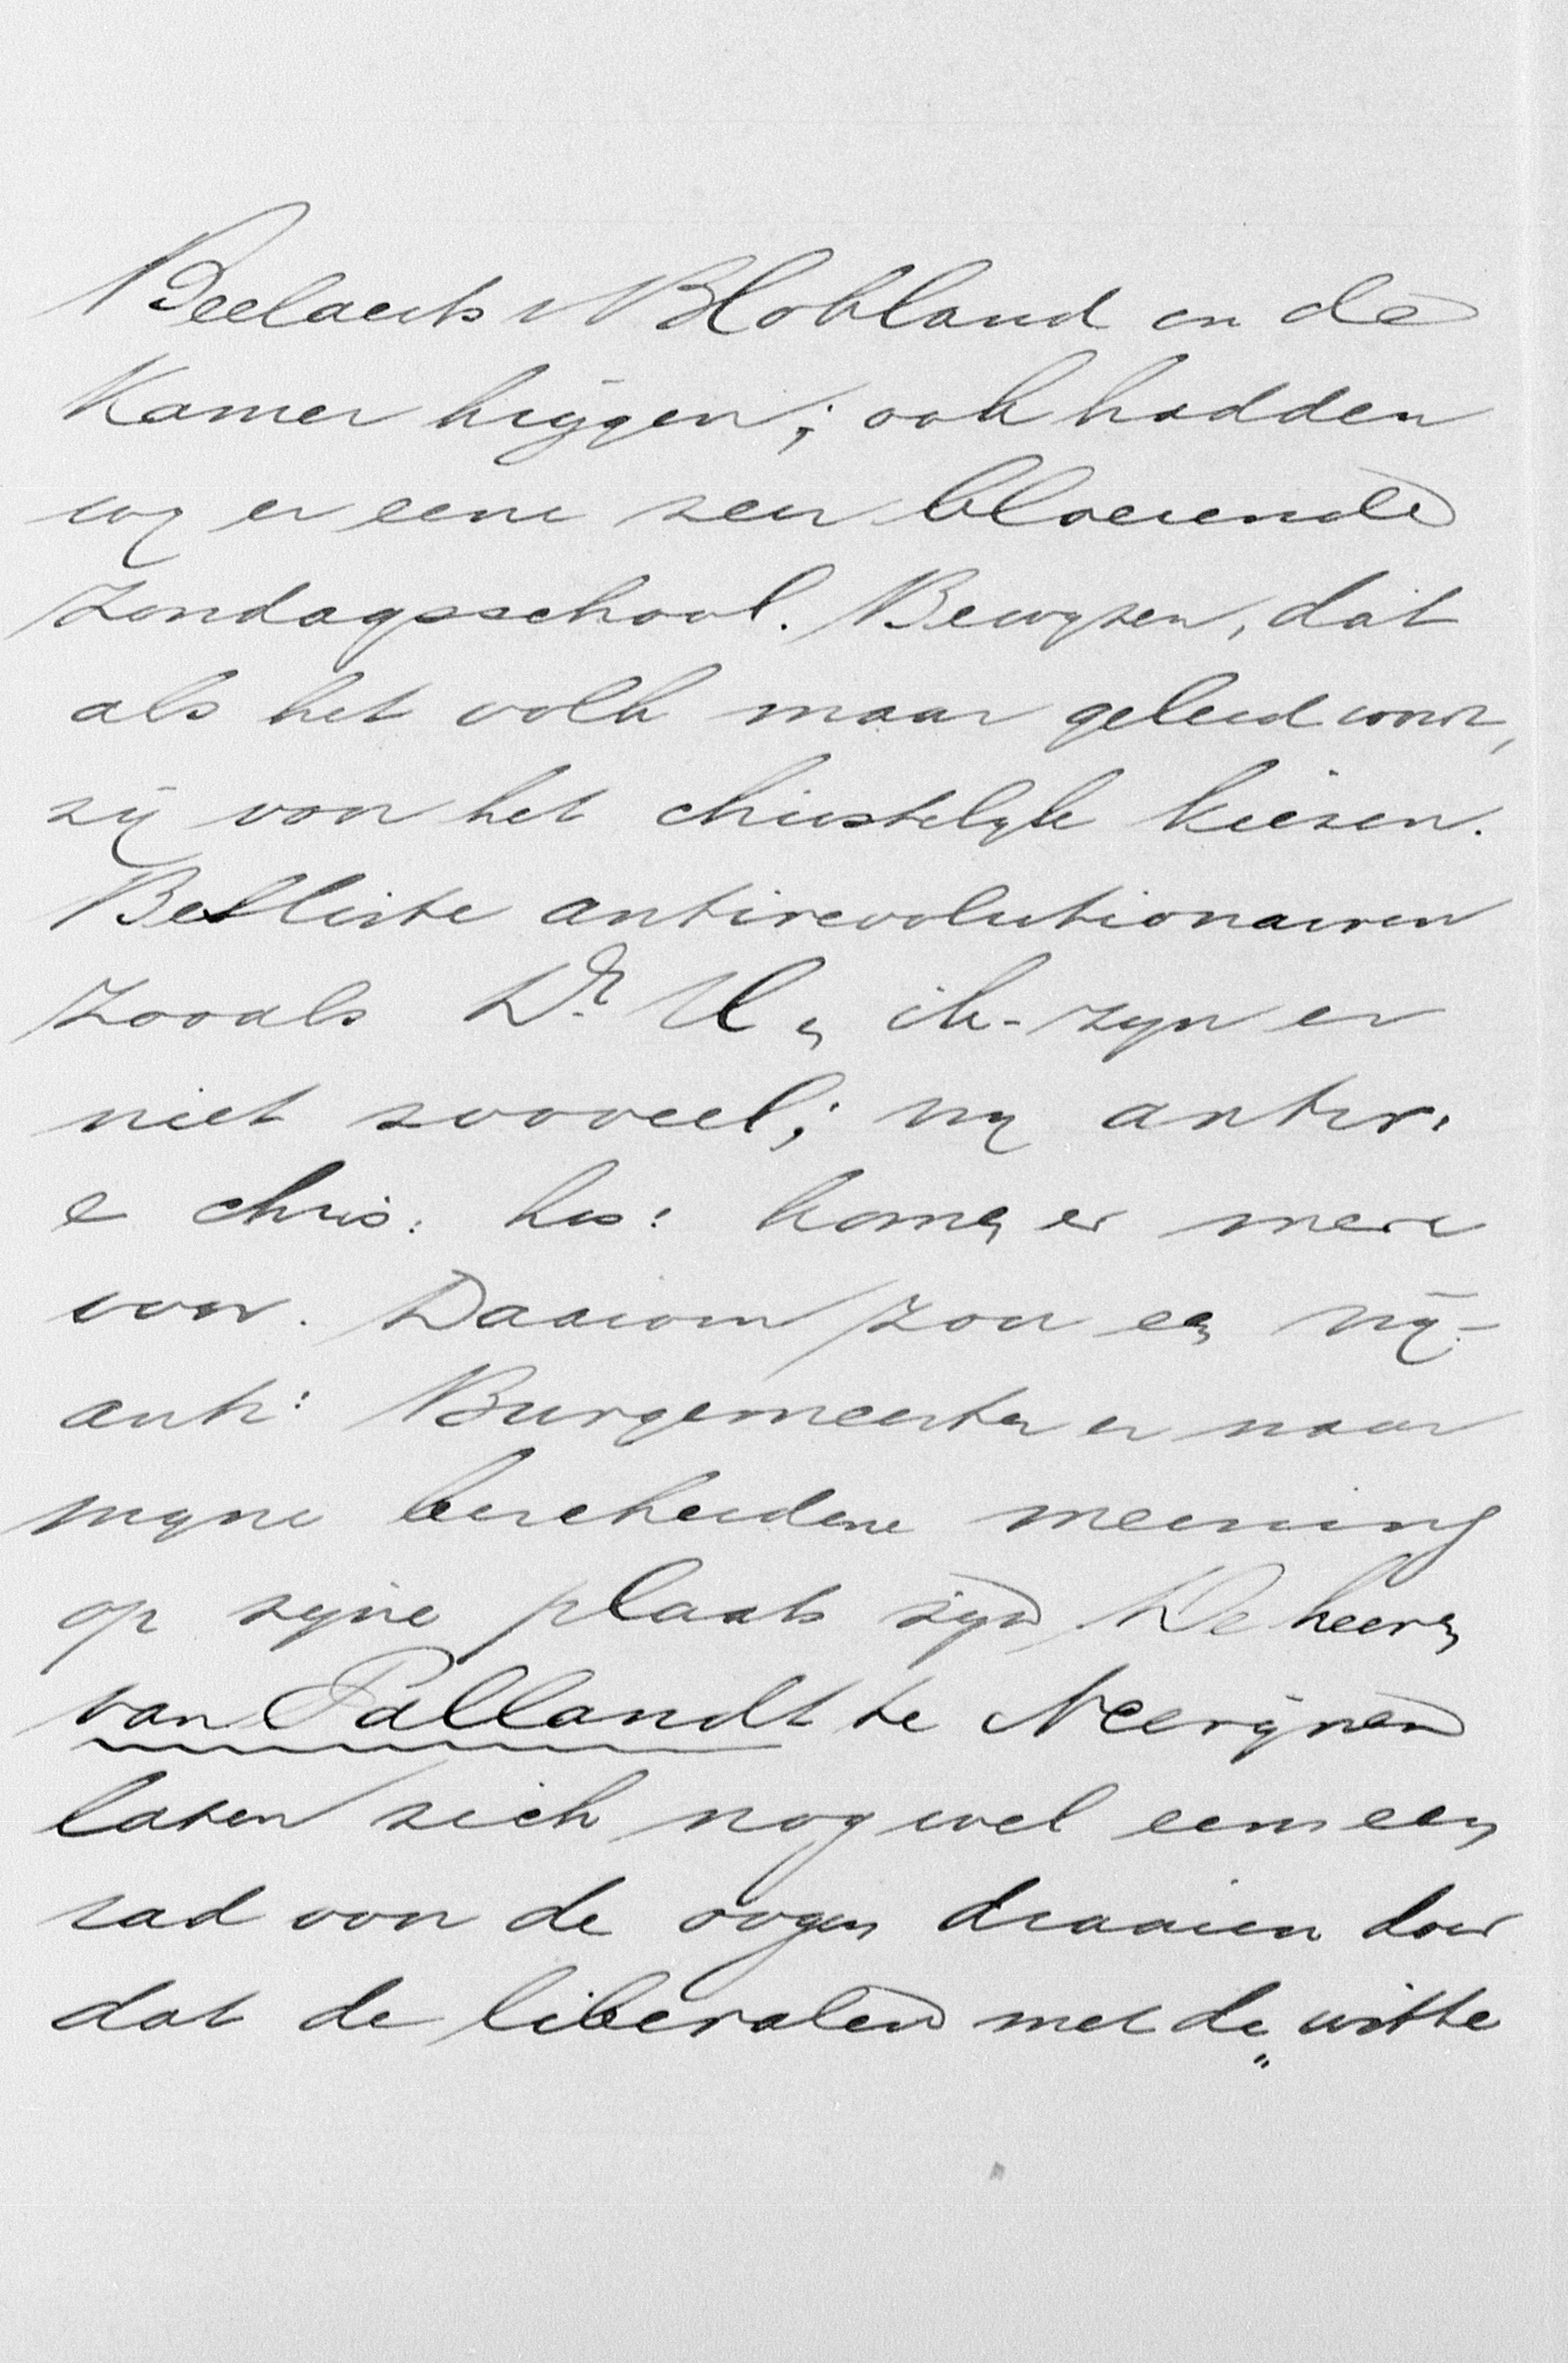 Beelaerts v Blokland in de
Kamer krijgen; ook hadden
wij er eene zeer bloeiende
Zondagsschool. Bewijzen, dat
als het volk maar geleid wordt,
zij voor het christelijke kiezen.
Besliste antirevolutionairen
Zooals Dr. U en ik - zijn er
niet zooveel; vrij antir.
e chris: his: komen er meer
voor. Daarom zou een vrij-
anti: Burgemeester er naar
mijne bescheidene meening
op zijne plaats zijn. De heeren
van Pallandt te Neerijnen
laten zich nog wel eens een
rad voor de oogen draaien door
dat de liberalen met de „witte